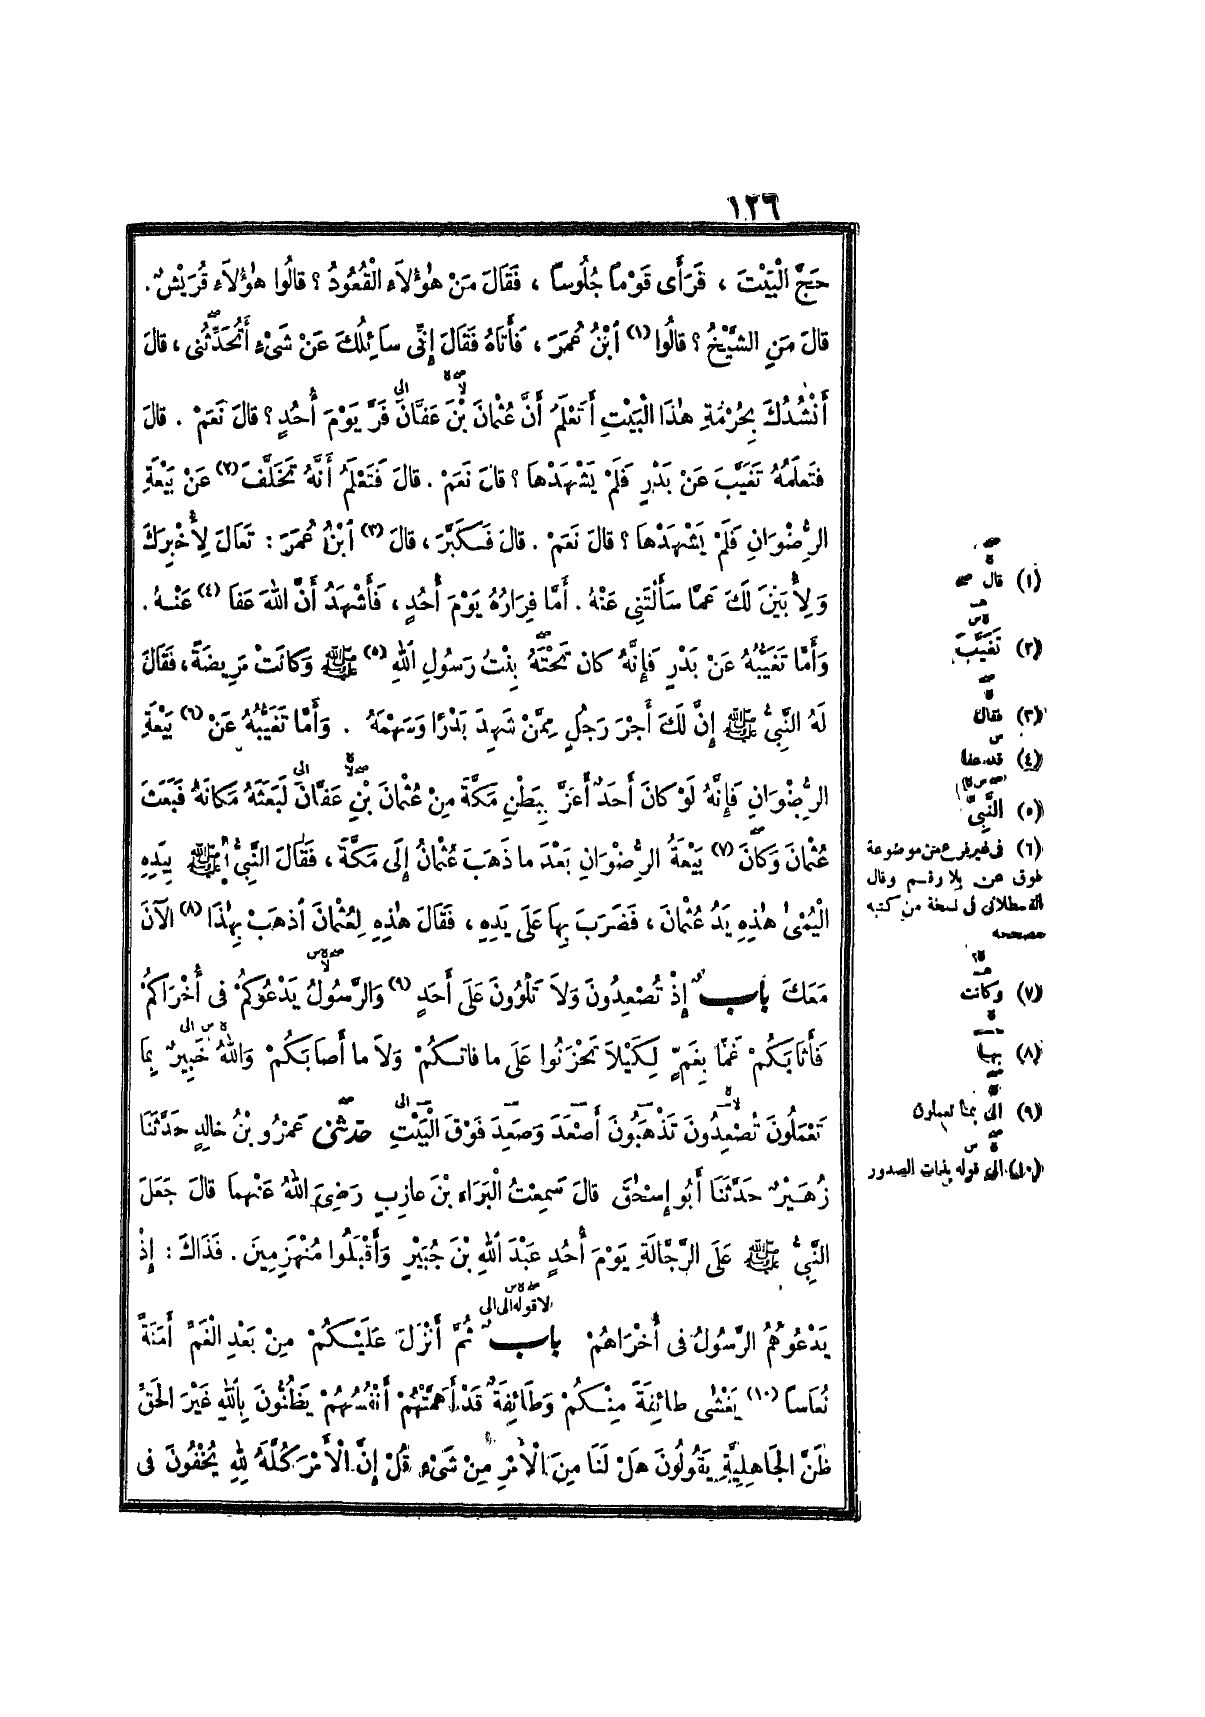 ١٢٦
حَجَّ الْبَيْتَ ، فَرَأَى قَوْماً جُلُوساً ، فَقَالَ مَنْ هٰؤُلاَءِ الْقُعُودُ ؟ قالُوا هٰؤُلاَءِ قُرَيْشٌ .
قالَ مَنِ الشَّيْخُ ؟ قالُوا (١) ابْنُ عُمَرَ ، فَأَتَاهُ فَقَالَ إِنِّى سَائِلُكَ عَنْ شَىْءٍ أَتُحَدِّثُنِى ، قالَ
أَنْشُدُكَ بِحُرْمَةِ هٰذَا الْبَيْتِ أَتَعْلَمُ أَنَّ عُثْمَانَ بْنَ عَفَّانَ فَرَّ يَوْمَ أُحُدٍ ؟ قالَ نَعَمْ . قالَ
فَتَعْلَمُهُ تَغَيَّبَ عَنْ بَدْرٍ فَلَمْ يَشْهَدْهَا ؟ قالَ نَعَمْ . قالَ فَتَعْلَمُ أَنَّهُ تَخَلَّفَ (٢) عَنْ بَيْعَةِ
الرِّضْوَانِ فَلَمْ يَشْهَدْهَا ؟ قالَ نَعَمْ . قالَ فَكَبَّرَ ، قالَ (٣) ابْنُ عُمَرَ : تَعَالَ لِأُخْبِرَكَ
وَلِأُبَيِّنَ لَكَ عَمَّا سَأَلْتَنِى عَنْهُ . أَمَّا فِرَارُهُ يَوْمَ أُحُدٍ ، فَأَشْهَدُ أَنَّ اللهَ عَفَا (٤) عَنْهُ .
وَأَمَّا تَغَيُّبُهُ عَنْ بَدْرٍ فَإِنَّهُ كانَ تَحْتَهُ بِنْتُ رَسُولِ اللهِ (٥) ﷺ وَكَانَتْ مَرِيضَةً ، فَقَالَ
لَهُ النَّبِىُّ ﷺ إِنَّ لَكَ أَجْرَ رَجُلٍ مِمَّنْ شَهِدَ بَدْرًا وَسَهْمَهُ . وَأَمَّا تَغَيُّبُهُ عَنْ (٦) بَيْعَةِ
الرِّضْوَانِ فَإِنَّهُ لَوْ كانَ أَحَدٌ أَعَزَّ بِبَطْنِ مَكَّةَ مِنْ عُثْمَانَ بْنِ عَفَّانَ لَبَعَثَهُ مَكانَهُ فَبَعَثَ
عُثْمَانَ وَكانَ (٧) بَيْعَةُ الرِّضْوَانِ بَعْدَ ما ذَهَبَ عُثْمَانُ إِلَى مَكَّةَ ، فَقَالَ النَّبِىُّ ﷺ بِيَدِهِ
الْيُمْنَى هٰذِهِ يَدُ عُثْمَانَ ، فَضَرَبَ بِهَا عَلَى يَدِهِ ، فَقَالَ هٰذِهِ لِعُثْمَانَ اذْهَبْ بِهٰذَا (٨) الآنَ
مَعَكَ باب إِذْ تُصْعِدُونَ وَلاَ تَلْوُونَ عَلَى أَحَدٍ (٩) وَالرَّسُولُ يَدْعُوكُمْ فى أُخْرَاكُمْ
فَأَثَابَكُمْ غَمًّا بِغَمٍّ لِكَيْلاَ تَحْزَنُوا عَلَى ما فاتَكُمْ وَلاَ ما أَصَابَكُمْ وَاللهُ خَبِيرٌ بِمَا
تَعْمَلُونَ تُصْعِدُونَ تَذْهَبُونَ أَصْعَدَ وَصَعِدَ فَوْقَ الْبَيْتِ حَدَّثَنِى عَمْرُو بْنُ خالِدٍ حَدَّثَنَا
زُهَيْرٌ حَدَّثَنَا أَبُو إِسْحٰقَ قالَ سَمِعْتُ الْبَرَاءَ بْنَ عازِبٍ رَضِىَ اللهُ عَنْهُمَا قالَ جَعَلَ
النَّبِىُّ ﷺ عَلَى الرَّجَّالَةِ يَوْمَ أُحُدٍ عَبْدَ اللهِ بْنَ جُبَيْرٍ وَأَقْبَلُوا مُنْهَزِمِينَ . فَذَاكَ : إِذْ
يَدْعُوهُمُ الرَّسُولُ فى أُخْرَاهُمْ باب ثُمَّ أَنْزَلَ عَلَيْكُمْ مِنْ بَعْدِ الْغَمِّ أَمَنَةً
نُعَاساً (١٠) يَغْشٰى طَائِفَةً مِنْكُمْ وَطَائِفَةٌ قَدْ أَهَمَّتْهُمْ أَنْفُسُهُمْ يَظُنُّونَ بِاللهِ غَيْرَ الحَقِّ
ظَنَّ الجَاهِلِيَّةِ يَقُولُونَ هَلْ لَنَا مِنَ الْأَمْرِ مِنْ شَىْءٍ قُلْ إِنَّ الْأَمْرَ كُلَّهُ لِلهِ يُخْفُونَ فى
(١) قال
(٢) تَغَيَّبَ
(٣) فقال
(٤) قد عفا
(٥) النَّبِىِّ
(٦) فى غير فرع من موضوعة
فوق عن بلا رقم وقال
القسطلانى فى نسخة من كتبه
مصححه
(٧) وكانت
(٨) بها
(٩) الى بما تعملون
(١٠) الى قوله بذات الصدور